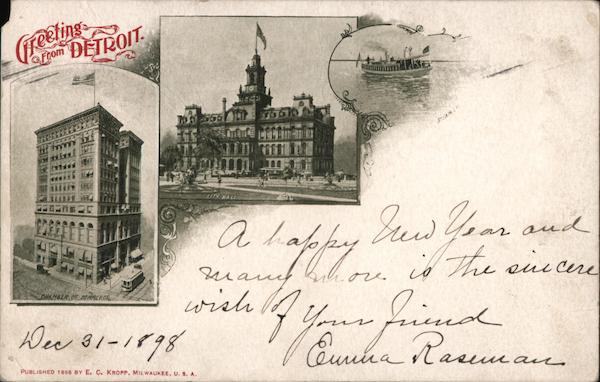 Greeting
from DETROIT.
CITY HALL
CHAMBER OF COMMERCE
A happy New Year and
many more is the sincere
wish of Your friend
Emma Raseman
Dec 31-1898
PUBLISHED 1898 BY E. C. KROPP, MILWAUKEE, U. S. A.